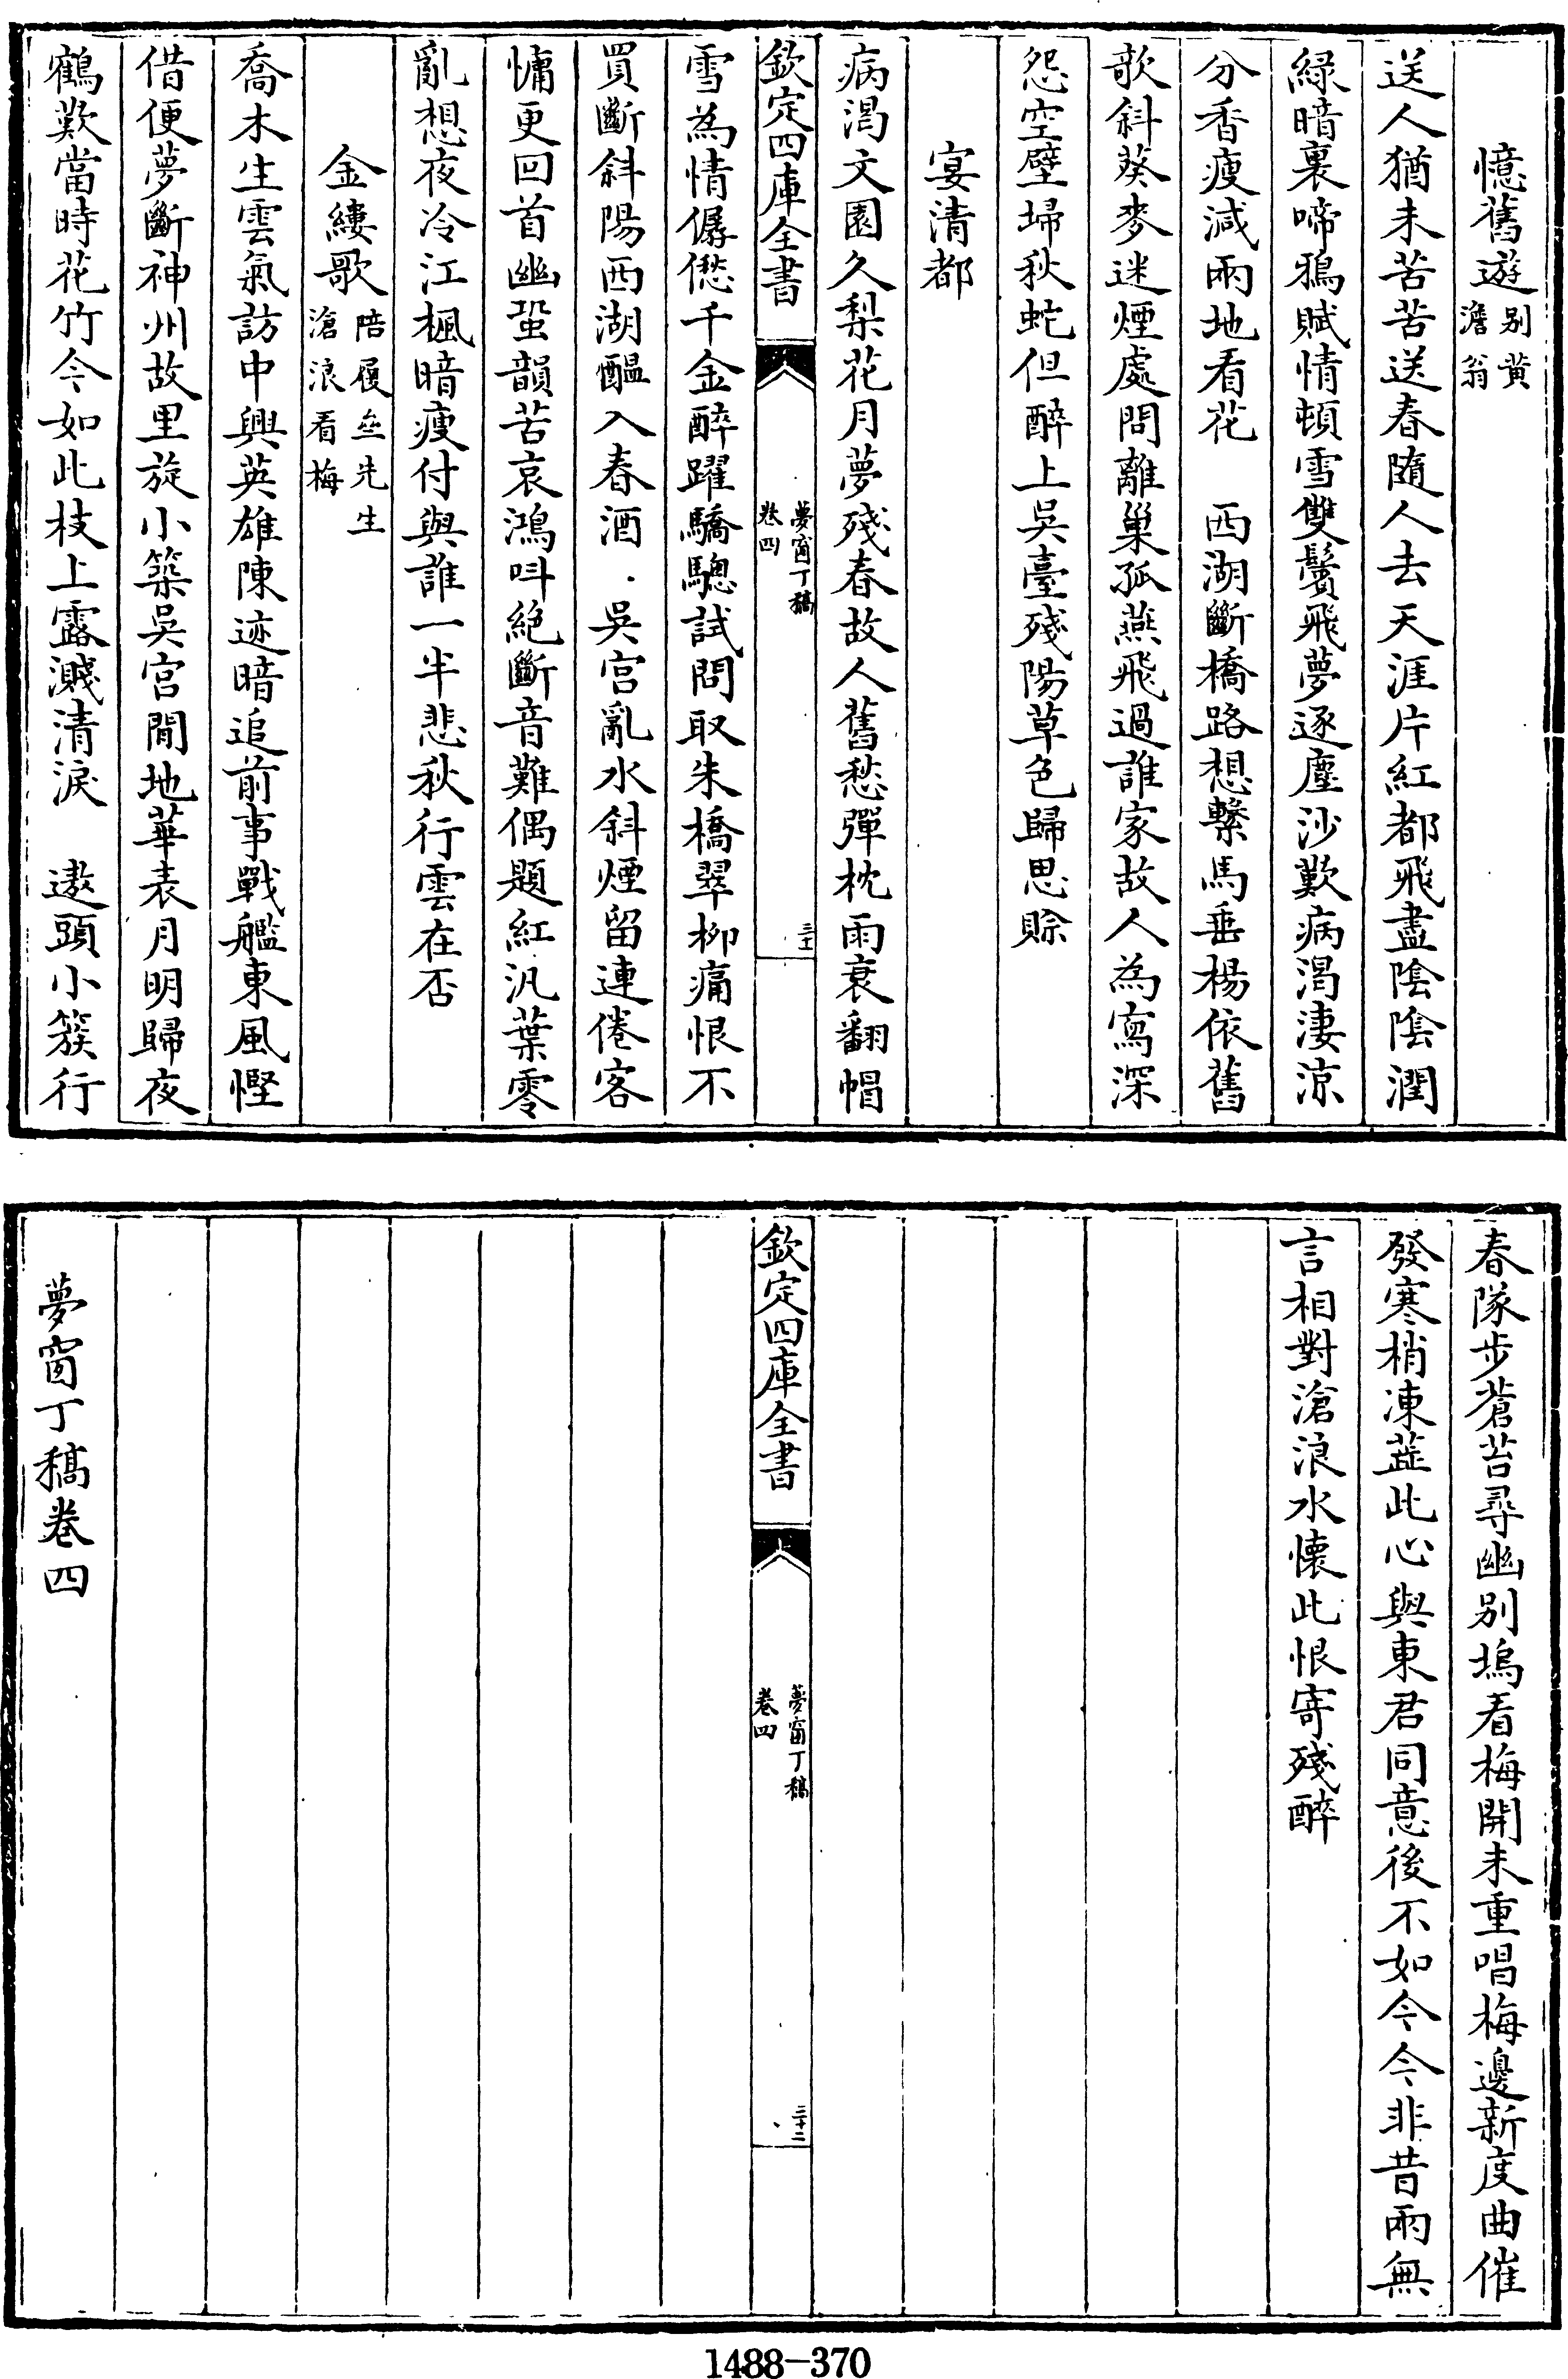 憶舊遊别黄澹翁
送人猶未苦苦送春隨人去天涯片紅都飛盡陰陰潤
緑暗裏啼鴉賦情頓雪雙鬢飛夢逐塵沙歎病渴淒涼
分香瘦減兩地看花　西湖斷橋路想繫馬垂楊依舊
欹斜葵麥迷煙處問離巢孤燕飛過誰家故人為寫深
怨空壁埽秋蛇但醉上吳臺殘陽草色歸思賒
宴清都
病渴文園久梨花月夢殘春故人舊愁彈枕雨衰翻帽
欽定四庫全書
夢窗丁稿
卷四
三十一
雪為情僝僽千金醉躍驕驄試問取朱橋翠柳痛恨不
買斷斜陽西湖醖入春酒　吳宫亂水斜煙留連倦客
慵更回首幽蛩韻苦哀鴻呌絶斷音難偶題紅汎葉零
亂想夜冷江楓暗瘦付與誰一半悲秋行雲在否
金縷歌陪履齋先生滄浪看梅
喬木生雲氣訪中興英雄陳迹暗追前事戰艦東風慳
借便夢斷神州故里旋小築吳宫閒地華表月明歸夜
鶴歎當時花竹今如此枝上露濺清淚　遨頭小簇行
春隊步蒼苔尋幽别塢看梅開未重唱梅邊新度曲催
發寒梢凍蘂此心與東君同意後不如今今非昔兩無
言相對滄浪水懷此恨寄殘醉
欽定四庫全書
夢窗丁稿
卷四
三十二
夢窗丁稿卷四
1488-370